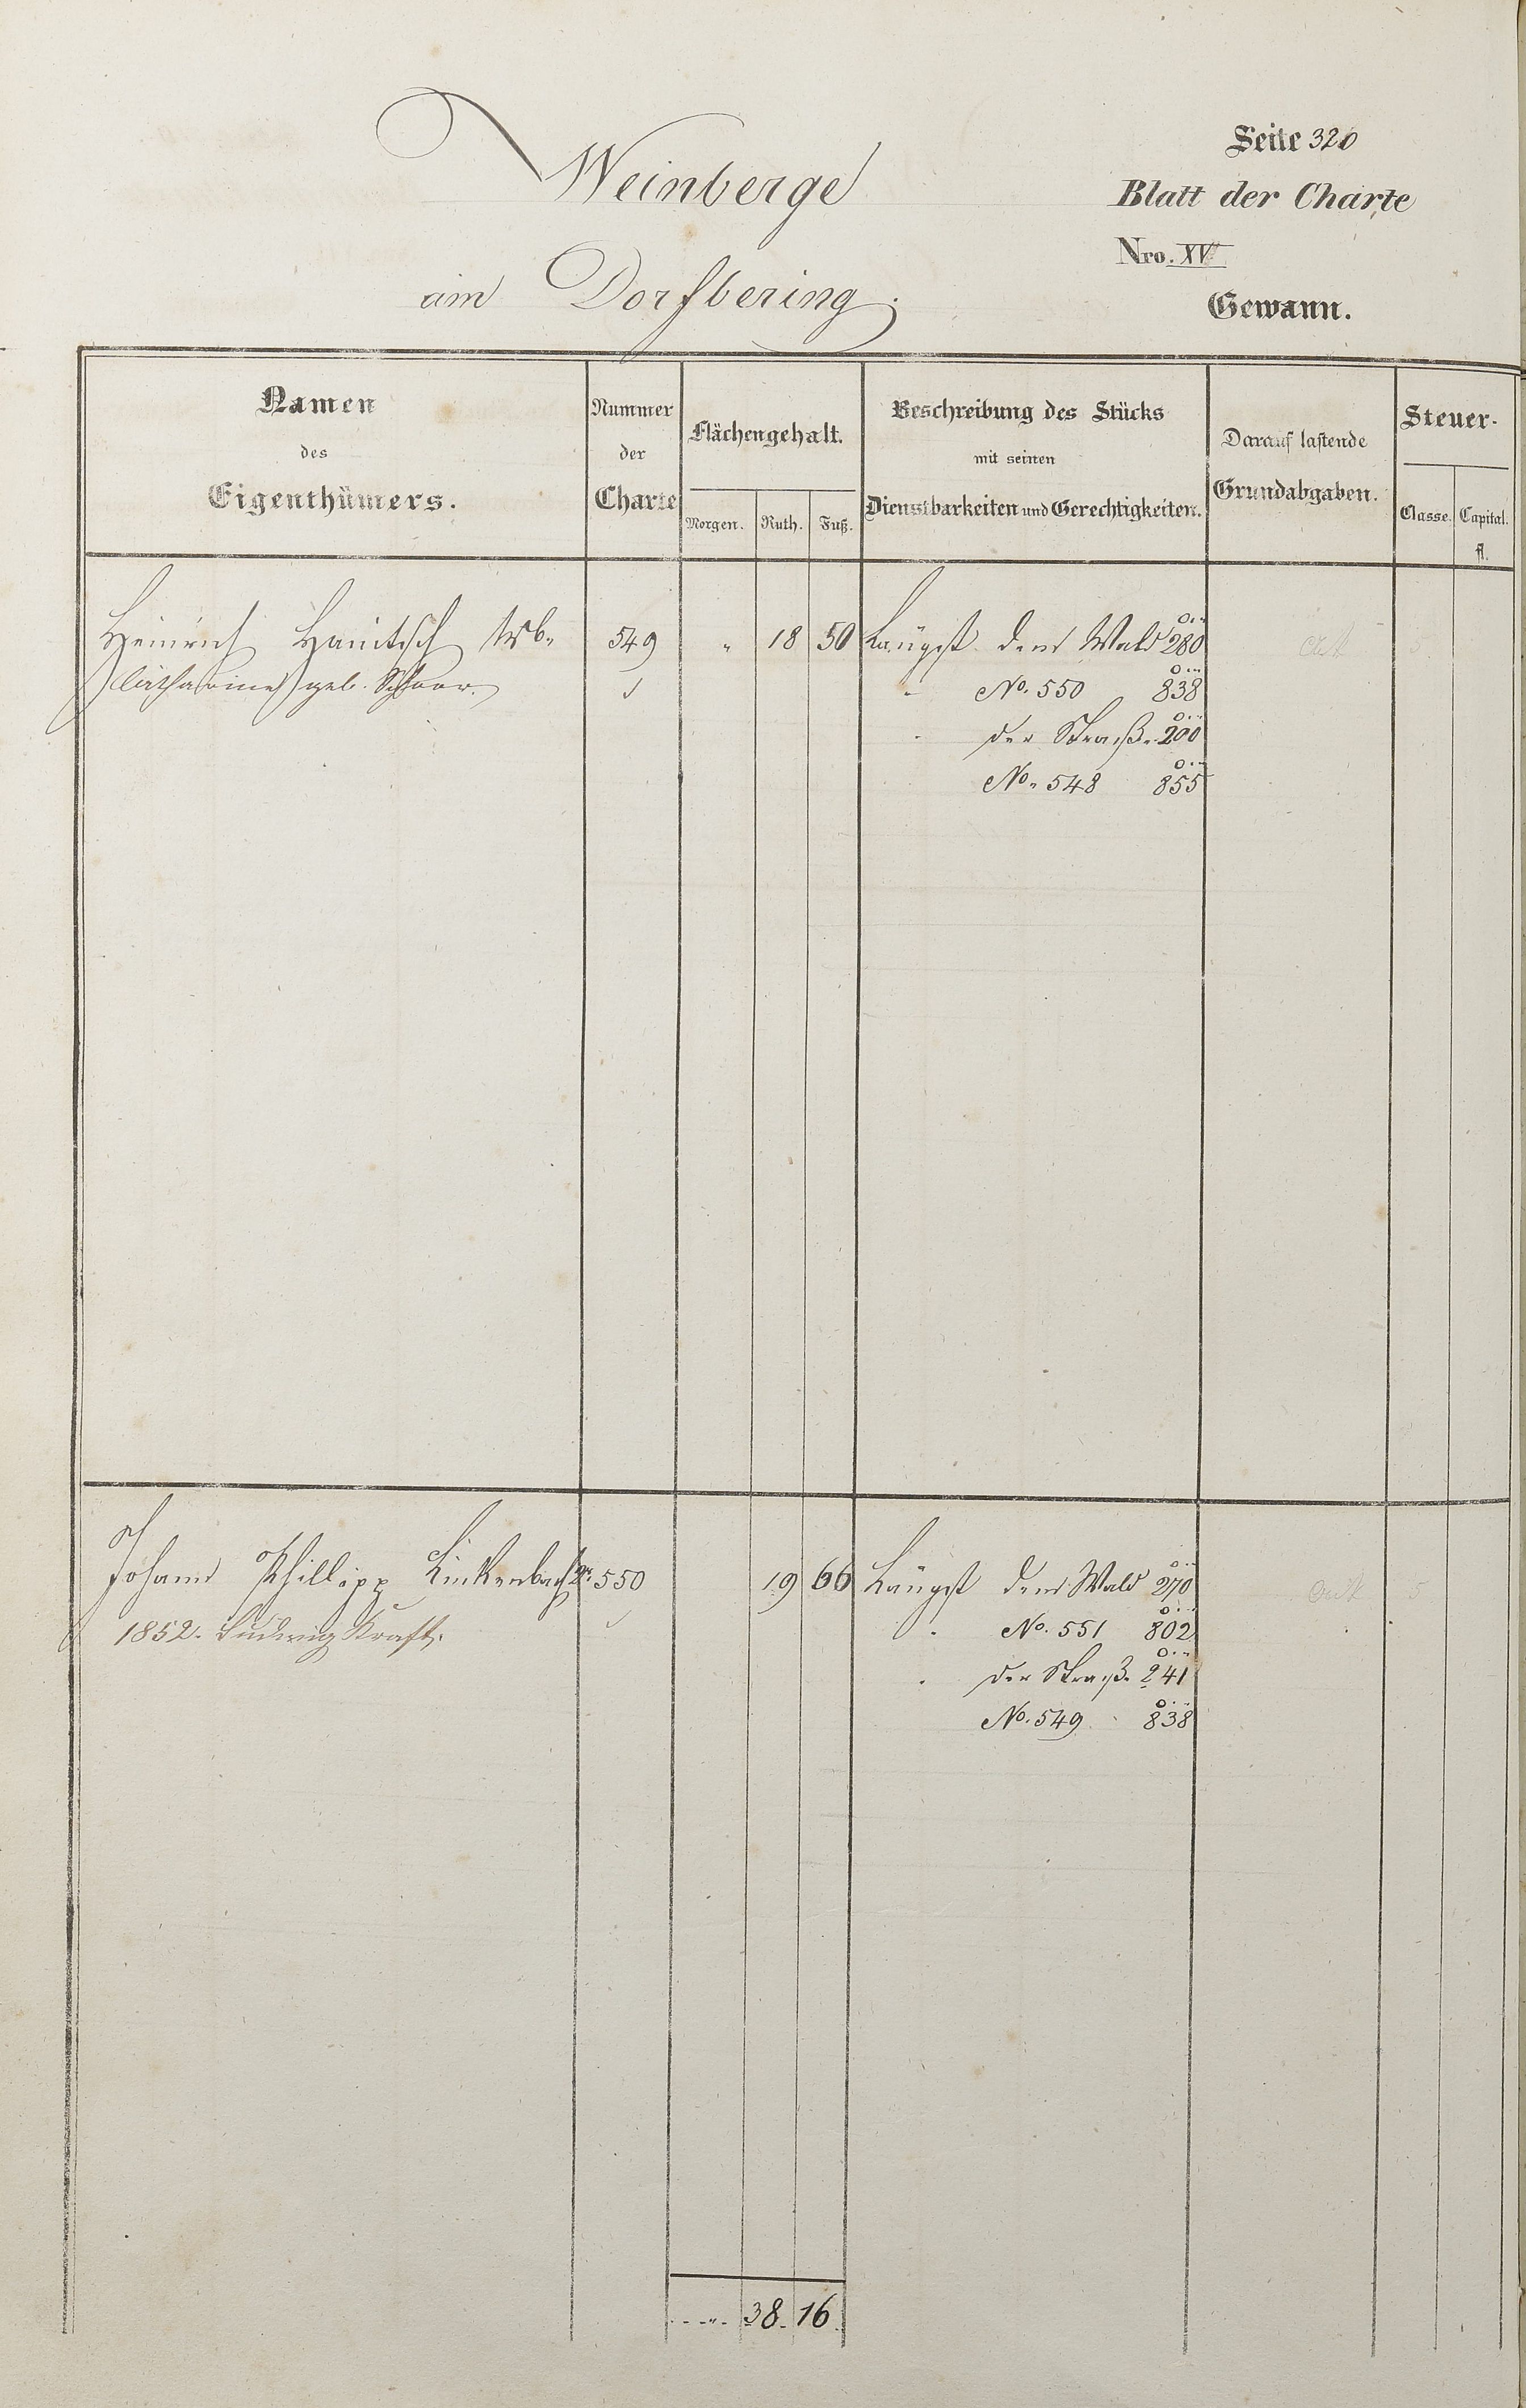 Seite 320
Weinberge
Blatt der Charte
Nro. XV
am Dorfbering.
Gewann.
Namen des Eigenthümers.
Nummer der Charte
Flächengehalt.
Morgen. Ruth. Fuß.
Beschreibung des Stücks mit seinen Dienstbarkeiten und Gerechtigkeiten.
Darauf lastende Grundabgaben.
Steuer-
Classe. Capital.
fl.
Heinrich Hanitsch Wb. 549 " 18 50 Längst dem Wald 280
Catharine geb. No. 550 838
der Straße 200
No. 548 855
Johann Phillipp Linkenbach 2r. 550 19 66 Längst dem Wald 270 5
1852. Ludwig Kraft. No. 551 802
der Straße 241
No. 549 838
38. 16.